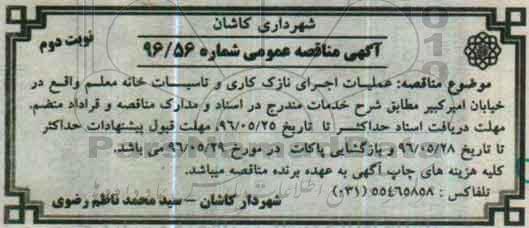 شهرداری کاشان
آگهی مناقصه عمومی شماره ۹۶/۵۶
نوبت دوم
موضوع مناقصه: عملیات اجرای نازک کاری و تاسیسات خانه معلم واقع در
خیابان امیرکبیر مطابق شرح خدمات مندرج در اسناد و مدارک مناقصه و قراداد منضم.
مهلت دریافت اسناد حداکثر تا تاریخ ۹۶/۰۵/۲۵، مهلت قبول پیشنهادات حداکثر
تا تاریخ ۹۶/۰۵/۲۸ و بازگشایی پاکات در مورخ ۹۶/۰۵/۲۹ می باشد.
کلیه هزینه های چاپ آگهی به عهده برنده مناقصه میباشد.
تلفاکس : ۵۵۴۶۵۸۵۸ (۰۳۱)
شهردار کاشان – سید محمد ناظم رضوی